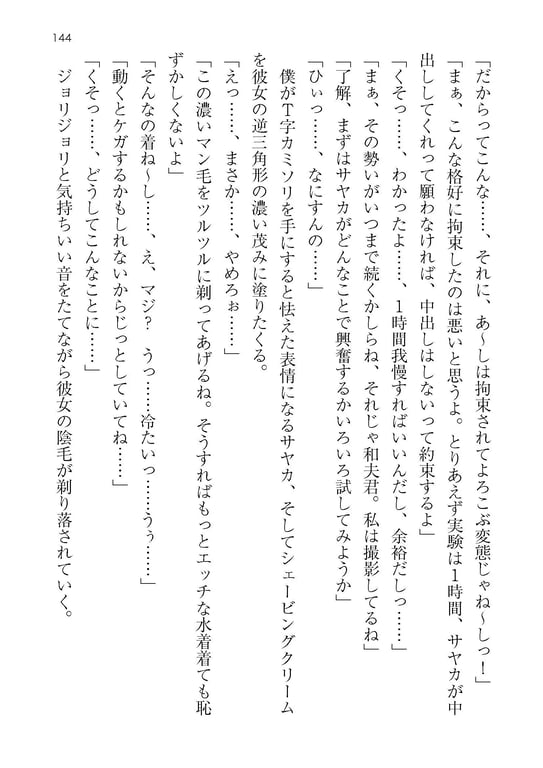 144
「だからってこんな……、それに、あ～しは拘束されてよろこぶ変態じゃね～しっ！」
「まぁ、こんな格好に拘束したのは悪いと思うよ。とりあえず実験は１時間、サヤカが中
出ししてくれって願わなければ、中出しはしないって約束するよ」
「くそっ……、わかったよ……、１時間我慢すればいいんだし、余裕だしっ……」
「まぁ、その勢いがいつまで続くかしらね、それじゃ和夫君。私は撮影してるね」
「了解、まずはサヤカがどんなことで興奮するかいろいろ試してみようか」
「ひぃっ……、なにすんの……」
　僕がＴ字カミソリを手にすると怯えた表情になるサヤカ、そしてシェービングクリーム
を彼女の逆三角形の濃い茂みに塗りたくる。
「えっ……、まさか……、やめろぉ……」
「この濃いマン毛をツルツルに剃ってあげるね。そうすればもっとエッチな水着着ても恥
ずかしくないよ」
「そんなの着ね～し……、え、マジ？　うっ……冷たいっ……うぅ……」
「動くとケガするかもしれないからじっとしていてね……」
「くそっ……、どうしてこんなことに……」
　ジョリジョリと気持ちいい音をたてながら彼女の陰毛が剃り落されていく。